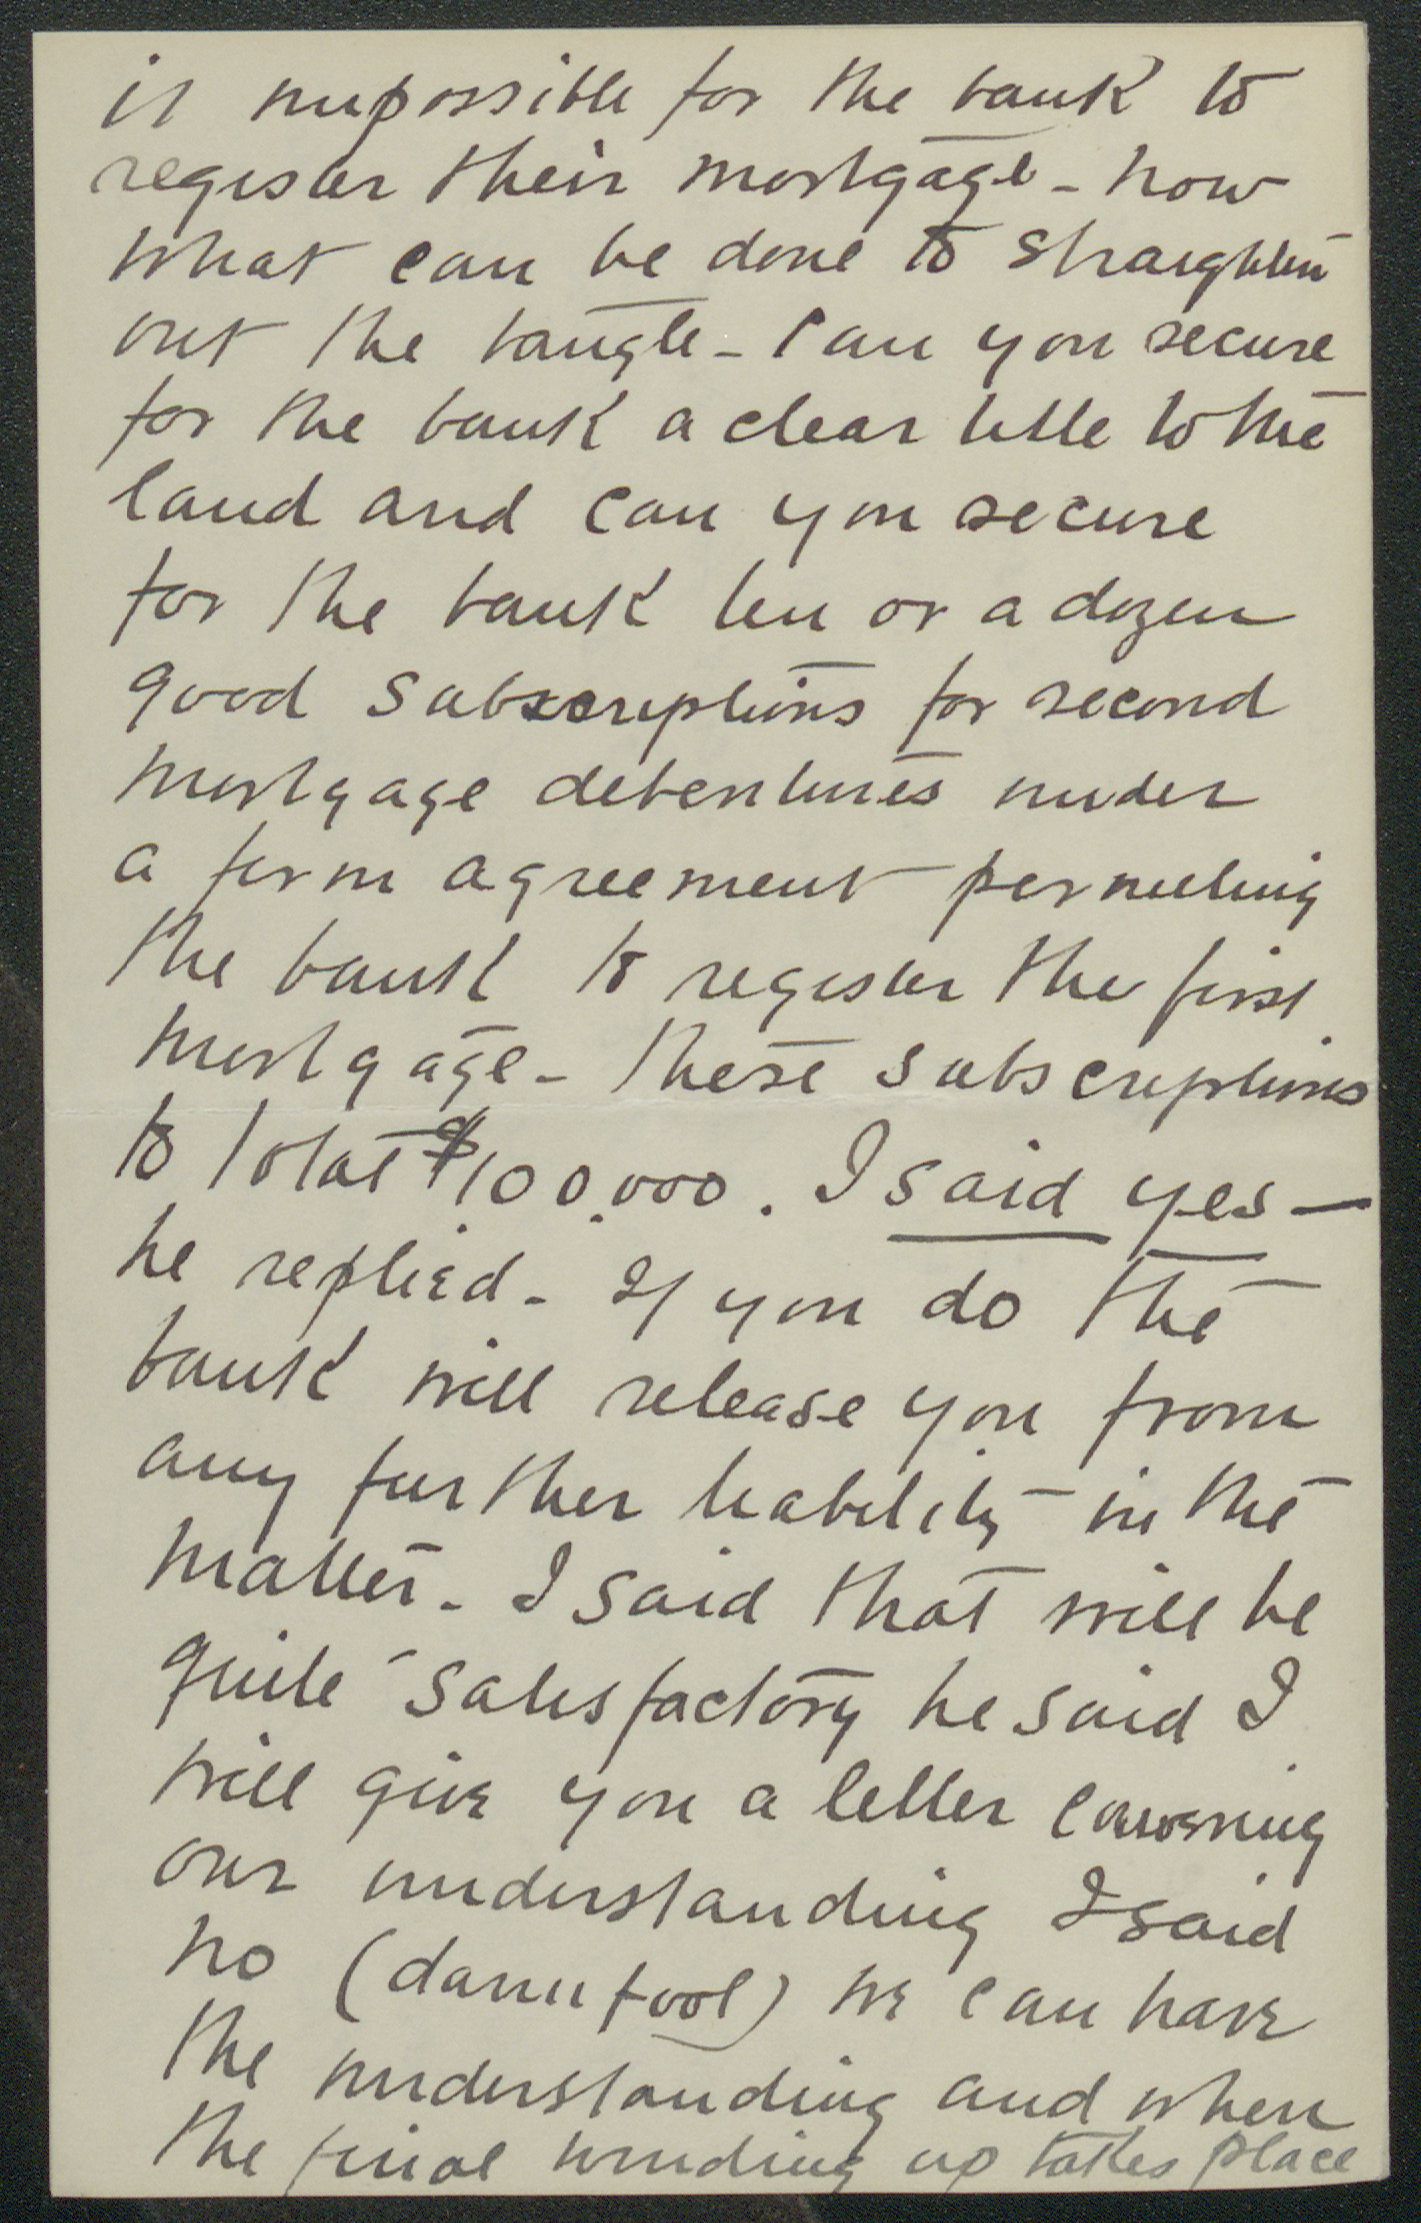 is impossible for the bank to
register their mortgage - now
what can be done to straighten
out the tangle - Can you secure
for the bank a clear title to the
land and can you secure
for the bank ten or a dozen
good subscriptions for second
mortgage debentures under
a form agreement permitting
the bank to register the first
mortgage - these subscriptions
to total $100,000. I said yes -
he replied - If you do the
bank will release you from
any further liability in the
matter - I said that will be
quite satisfactory he said I
will give you a letter covering
our understanding I said
no (damn fool) we can have
the understanding and when
the final winding up takes place